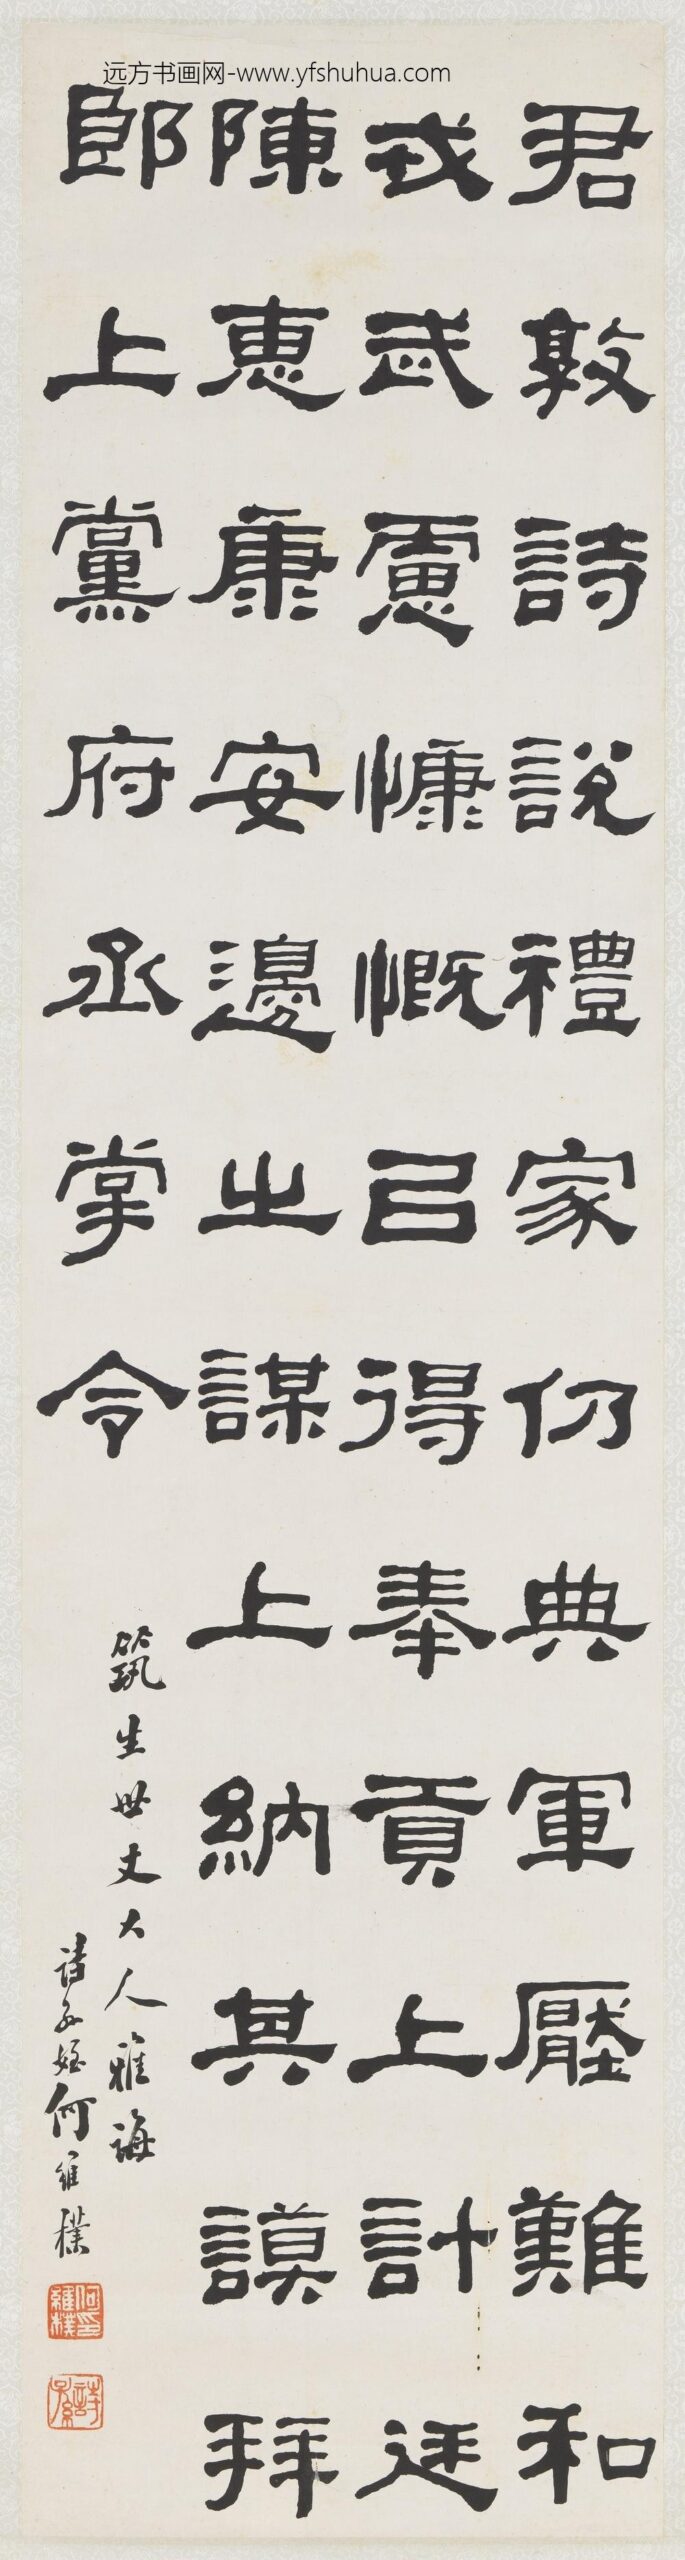 远方书画网-www.yfshuhua.com
君敦詩說禮家仍典軍壓難和
戎武慮慷慨㠯得奉貢上計廷
陳惠康安邊之謀上納其謨拜
郎上黨府丞掌令
筑生世丈大人雅誨
詩孫姪何維樸
何印維樸
詩孫